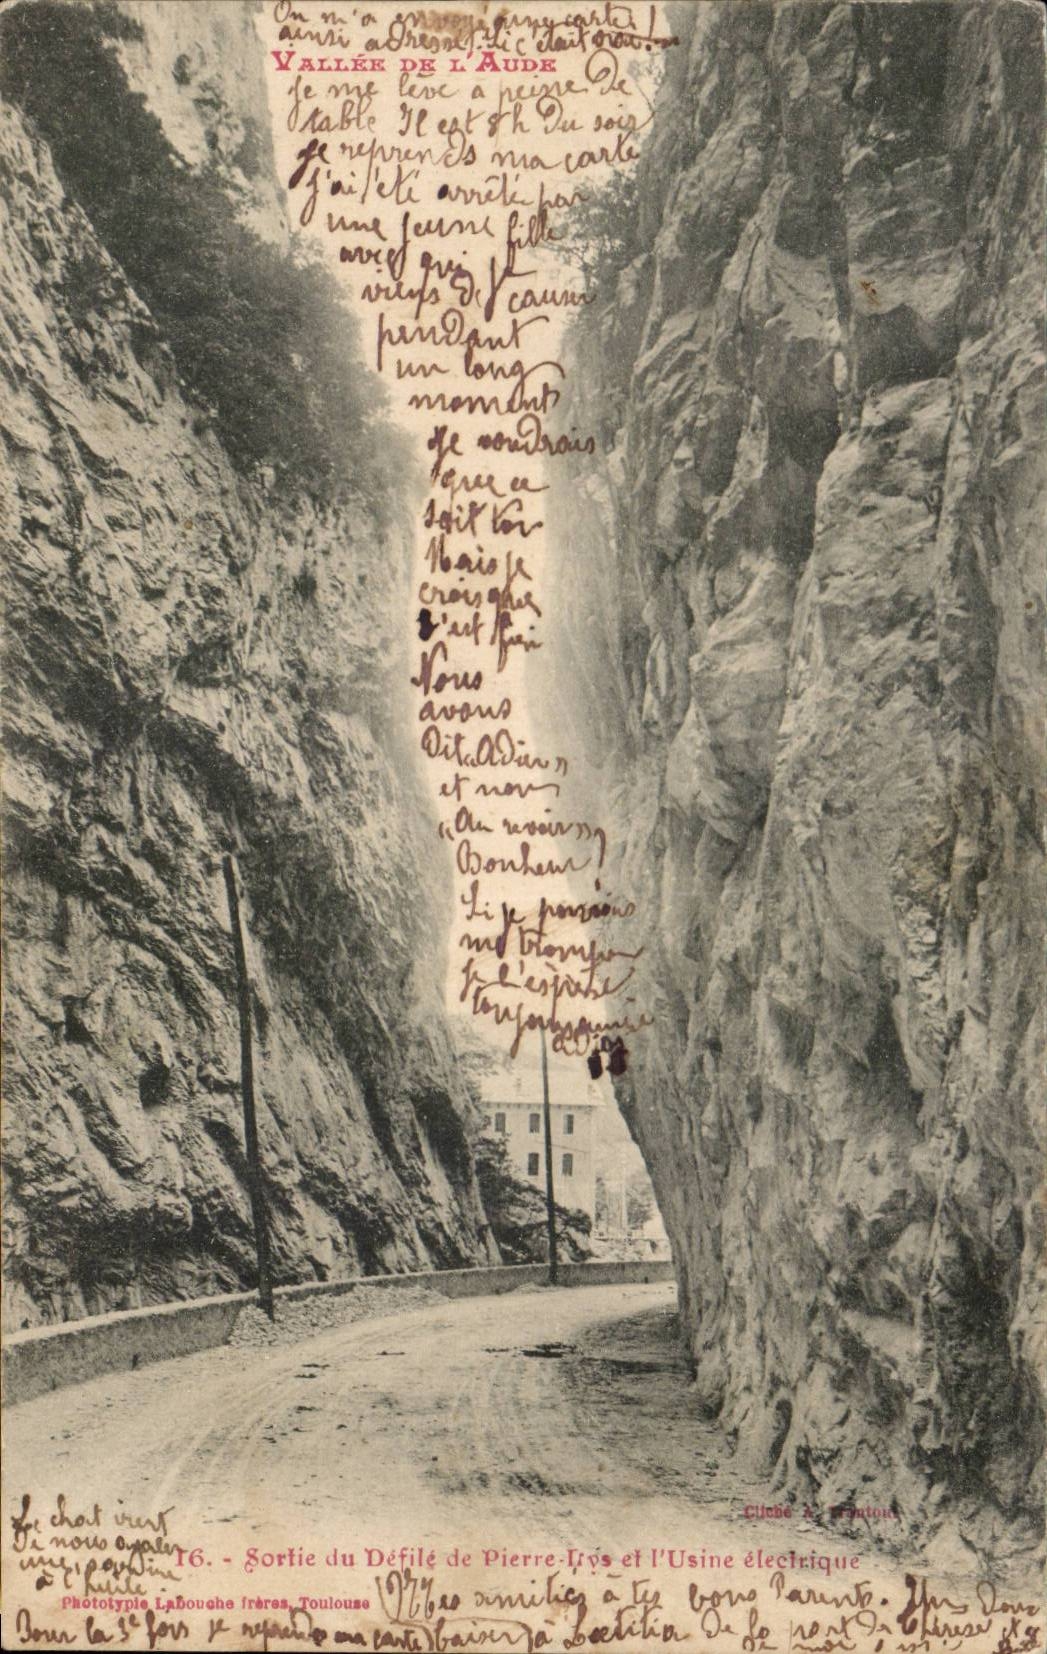 On m'a envoyé une carte
ainsi adressée. Si c'était vrai!
VALLÉE DE L'AUDE
je me lève à peine de
table Il est 8 h du soir
je reprends ma carte
j'ai été arrêté par
une jeune fille
avec qui je
viens de causer
pendant
un long
moment
Je voudrais
que ce
soit toi
Mais je
crois que
c'est fini
Nous
avons
dit « Adieu »
et non
« Au revoir »
Bonheur
Si je pouvais
me tromper
je l'espère
toujours
adieu
Le chat
nous
une
à l'huile.
16. - Sortie du Défilé de Pierre-Lys et l'Usine électrique
Phototypie Labouche frères, Toulouse
Cliché A. Trantoul
Mes amitiés à tes bons Parents. Un doux
Pour la 3e fois je reprends ma carte) baiser à Laetitia de la part de Thérèse et
de moi